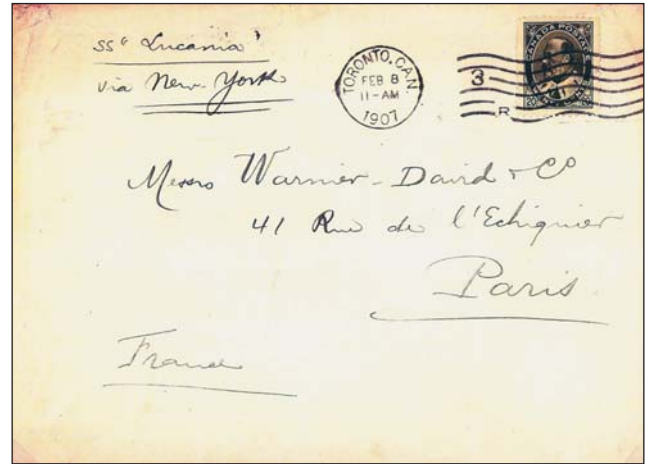 SS "Lucania"
via New York
TORONTO. CAN.
FEB 8
11-AM
1907
3
R
CANADA POSTAGE
20
Messrs Warnier-David & Co
41 Rue de l'Echiquier
Paris
France